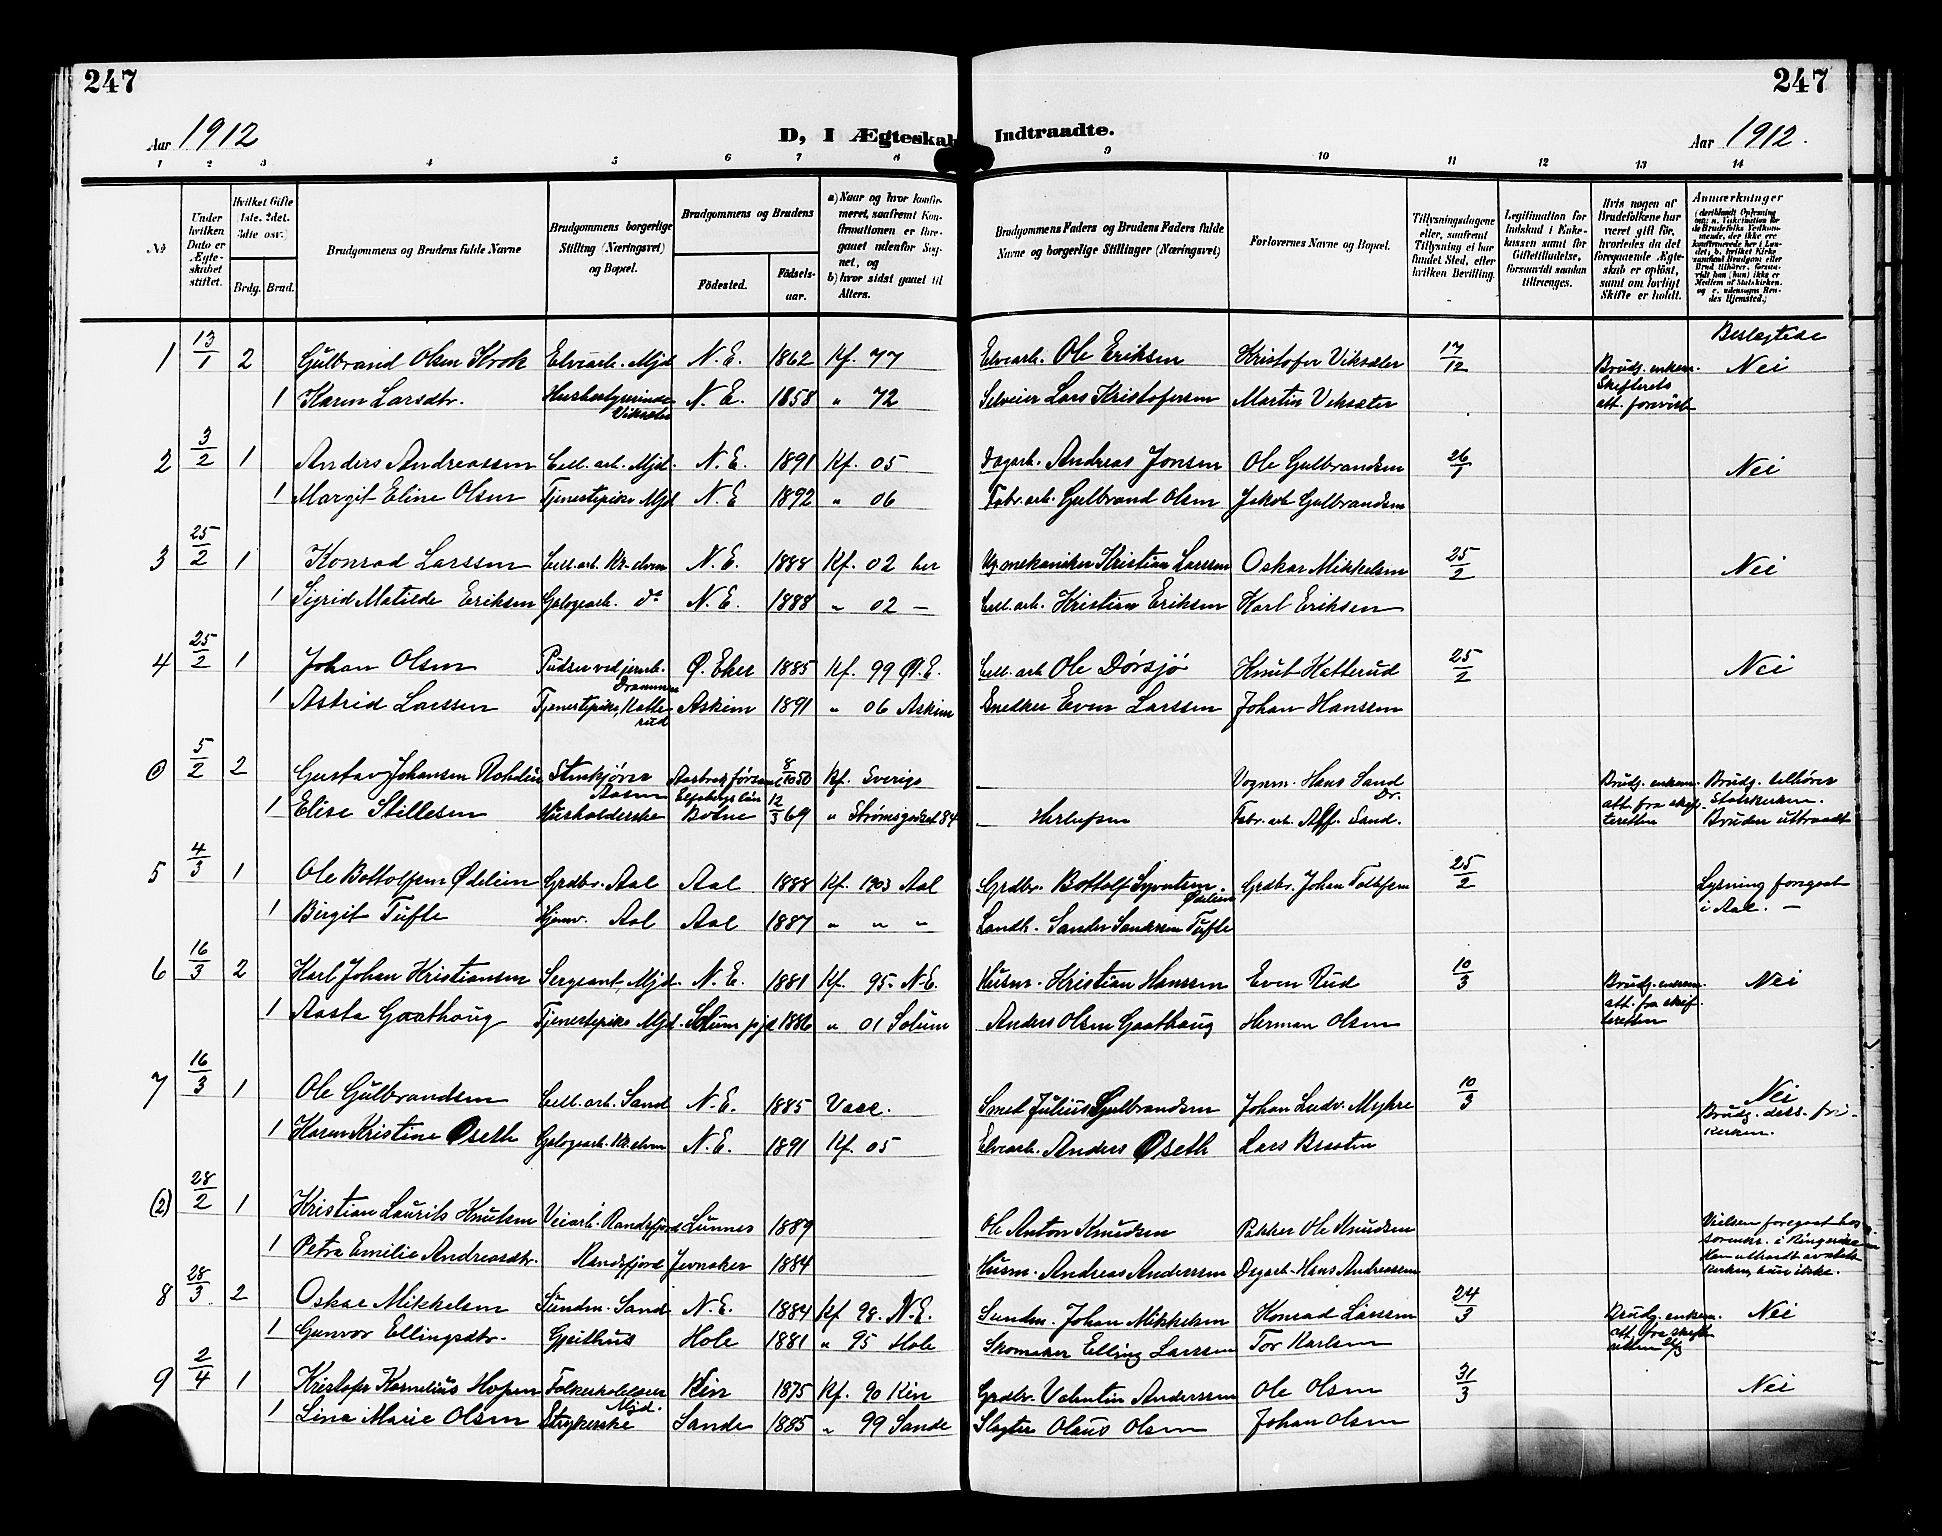 247
247
Aar 1912
D, I Ægteskab Indtraadte.
Aar 1912.
1 2 3 4 5 6 7 8 9 10 11 12 13 14
No
Under hvilken Dato er Ægteskabet stiftet.
Hvilket Gifte 1ste, 2det, 3die osv.)
Brdg. Brud.
Brudgommens og Brudens fulde Navne
Brudgommens borgerlige Stilling (Næringsvei) og Bopæl.
Brudgommens og Brudens
Fødested.
Fødselsaar.
a) Naar og hvor konfirmeret, saafremt Konfirmationen er foregaaet udenfor Sognet, og
b) hvor sidst gaaet til Alters.
Brudgommens Faders og Brudens Faders fulde Navne og borgerlige Stillinger (Næringsvei)
Forlovernes Navne og Bopæl.
Tillysningsdagene eller, saafremt Tillysning ei har fundet Sted, efter hvilken Bevilling.
Legitimation for Indskud i Enkekassen samt for Giftetilladelse, forsaavidt saadan tiltrænges.
Hvis nogen af Brudefolkene har været gift før, hvorledes da det foregaaende Ægteskab er opløst, samt om lovligt Skifte er holdt.
Anmærkninger
Beslegtede
1 13/1 2 Gulbrand Olsen Krok Elvearb. Mjd N. E. 1862 Kf. 77 Elvearb. Ole Eriksen Kristofer Viksæter 17/12 Brudg. enkem. Skifterets att. forevist Nei
1 Karen Larsdtr. Husbestyrinde Viksæter N. E. 1858 " 72 Selveier Lars Kristofersen Martin Viksæter
2 3/2 1 Anders Andreassen Cell. arb. Mjd. N. E. 1891 Kf. 05 Dagarb. Andreas Jonsen Ole Gulbrandsen 26/1 Nei
1 Margit Eline Olsen Tjenestepike Mjd N. E 1892 " 06 Fabr. arb. Gulbrand Olsen Jakob Gulbrandsen
3 25/2 1 Konrad Larssen Cell. arb. Kr. elven N. E. 1888 Kf. 02 her Kristian Larssen Oskar Mikkelsen 25/2 Nei
1 Sigrid Matilde Eriksen Galogearb. do N. E. 1888 " 02 — Cell. arb. Kristian Eriksen Karl Eriksen
4 25/2 1 Johan Olsen Pudser ved jernb. Drammen Ø. Eker 1885 Kf. 99 Ø. E. Cell. arb Ole Dørsjø Knut Katterud 25/2 Nei
1 Astrid Larssen Tjenestepike, Katterud Askim 1891 " 06 Askim Snedker Even Larssen Johan Hanssen
5/2 2 Gustav Johansen Rohdin Aasen 50 Kf. Sverige — Vognm. Hans Sand Dr. Brudg. enkem. att. fra skifteretten Brudg. tilhører Statskirken.
1 Elise Stillesen Husholderske Botne 12/3 69 " Strømsgodset 84 — Herlufsen Fabr. arb. Alf. Sand. Bruden uttraadt
5 4/3 1 Ole Bottolfsen Ødelien Grdbr. Aal Aal 1888 Kf. 1903 Aal Grdbr. Bottolf Syvertsen Ødelien Grdbr. Johan Tollefsen 25/2 Lysning foregaat i Aal. —
1 Birgit Tufte Hjemv. Aal Aal 1887 " " " Landh. Sander Sandersen Tufte
6 16/3 2 Karl Johan Kristiansen Sergeant, Mjd. N. E. 1881 Kf. 95. N. E. Husm. Kristian Hanssen Even Rud 10/3 Brudg. enkem. att. fra skifteretten Nei
1 Aasta Gaathaug Tjenestepike Mjd. Solum 1886 " 01 Solum Anders Olsen Gaathaug Herman Olsen
7 16/3 1 Ole Gulbrandsen Cell. arb. Sand N. E. 1885 Vacc. Smed Julius Gulbrandsen Johan Ludv. Myhre 10/3 Nei Brudg. diss. frikirken.
1 Karen Kristine Øseth Galogearb. Kr. elven N. E. 1891 Kf. 05 Elvearb. Anders Øseth Lars Braaten
(2) 28/2 1 Kristian Laurits Knutsen Veiarb. Randsfjord Lunner 1889 Ole Anton Knudsen Pakker Ole Knudsen Vielsen foregaat hos sorensk. i Ringerike
1 Petra Emilie Andreasdtr. Randsfjord Jevnaker 1884 Husm. Andreas Anderssen Dagarb. Hans Andreassen Han utmeldt av statskirken, hun ikke.
8 28/3 2 Oskar Mikkelsen Sundm. Sand N. E. 1884 Kf 98. N. E. Sundm. Johan Mikkelsen Konrad Larssen 24/3 Brudg. enkem. att. fra skifteretten Nei
1 Gunvor Ellingsdtr. Gjeithus Hole 1881 " 95 Hole Skomaker Elling Larssen Tor Karlsen
9 2/4 1 Kristofer Kornelius Hopen Folkeskolelærer Mjd. Kin 1875 Kf. 90 Kin Grdbr. Valentin Anderssen Ole Olsen 31/3 Nei
1 Lina Marie Olsen Strykerske Sande 1885 " 99 Sande Slagter Olaus Olsen Johan Olsen